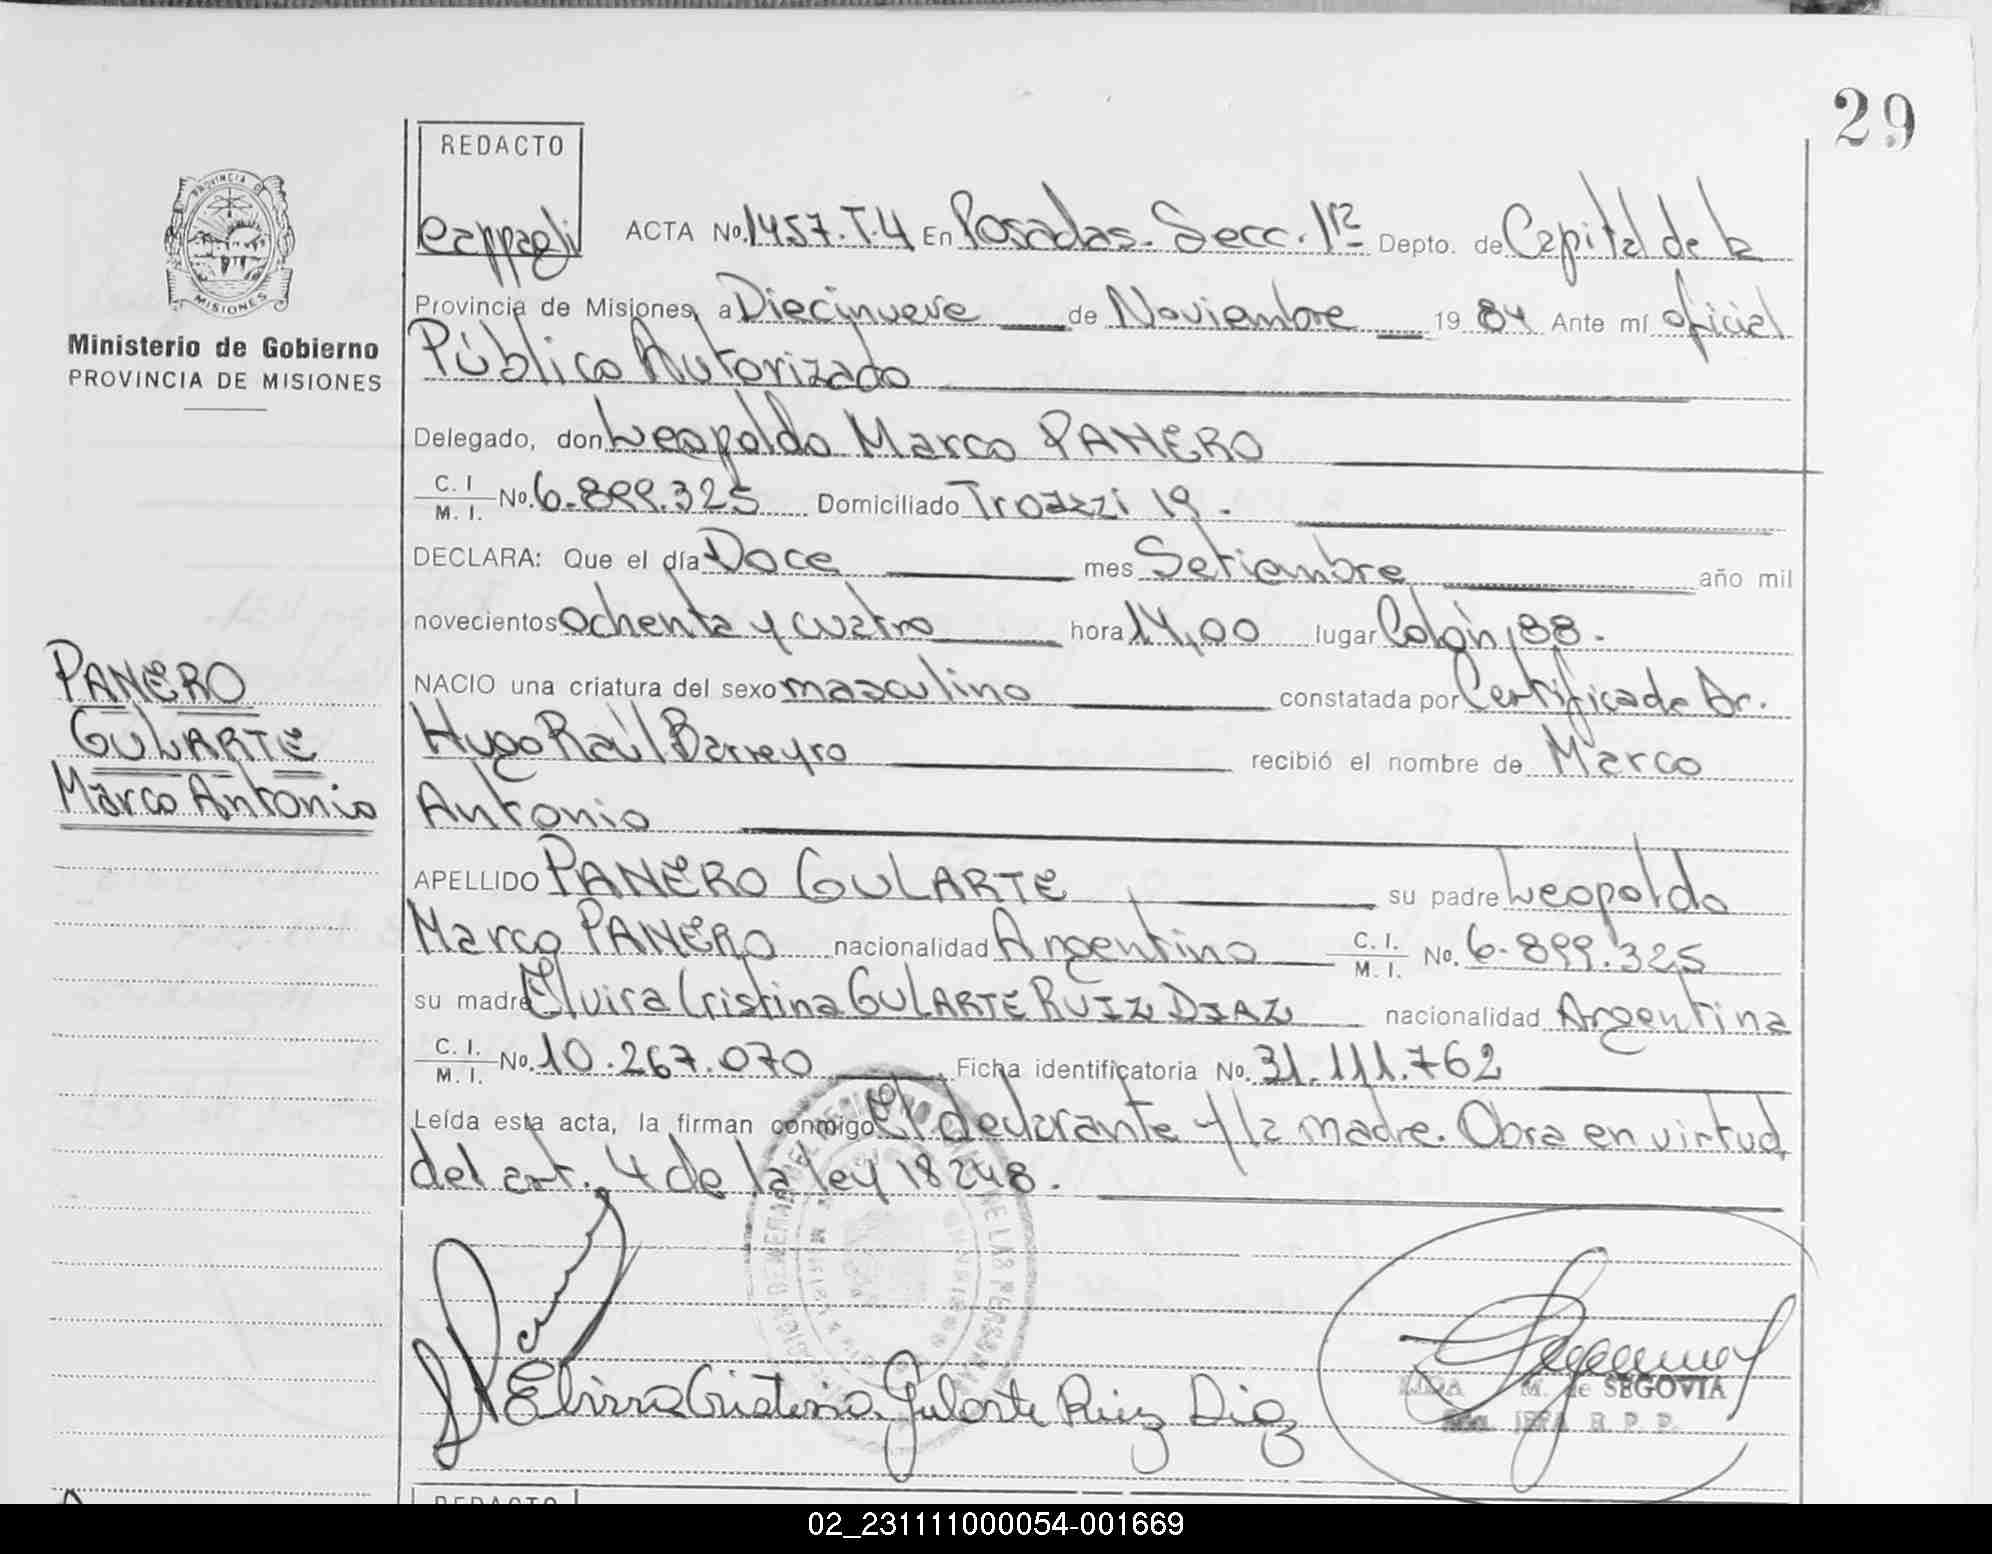 29
REDACTO
PROVINCIA DE
MISIONES
Ministerio de Gobierno
PROVINCIA DE MISIONES
ACTA No. 1457.T.4 En Posadas. Secc. 1ra Depto. de Capital de la
Provincia de Misiones, a Diecinueve de Noviembre 19 84 Ante mí oficial
Público Autorizado
Delegado, don Leopoldo Marco PANERO
C. I. / M. I. No. 6.899.325 Domiciliado Troazzi 19.
DECLARA: Que el día Doce mes Setiembre año mil
novecientos ochenta y cuatro hora 14,00 lugar Colón, 88.
NACIO una criatura del sexo masculino constatada por Certificado Dr.
Hugo Raúl Barreyro recibió el nombre de Marco
Antonio
APELLIDO PANERO GULARTE su padre Leopoldo
Marco PANERO nacionalidad Argentino C. I. / M. I. No. 6.899.325
su madre Elvira Cristina GULARTE RUIZ DIAZ nacionalidad Argentina
C. I. / M. I. No. 10.267.070 Ficha identificatoria No. 31.111.762
Leída esta acta, la firman conmigo El declarante y la madre. Obra en virtud
del art. 4 de la ley 18248.
PANERO
GULARTE
Marco Antonio
Elvira Cristina Gularte Ruiz Diaz
M. de SEGOVIA
JEFA R. P. P.
REDACTO
02_231111000054-001669